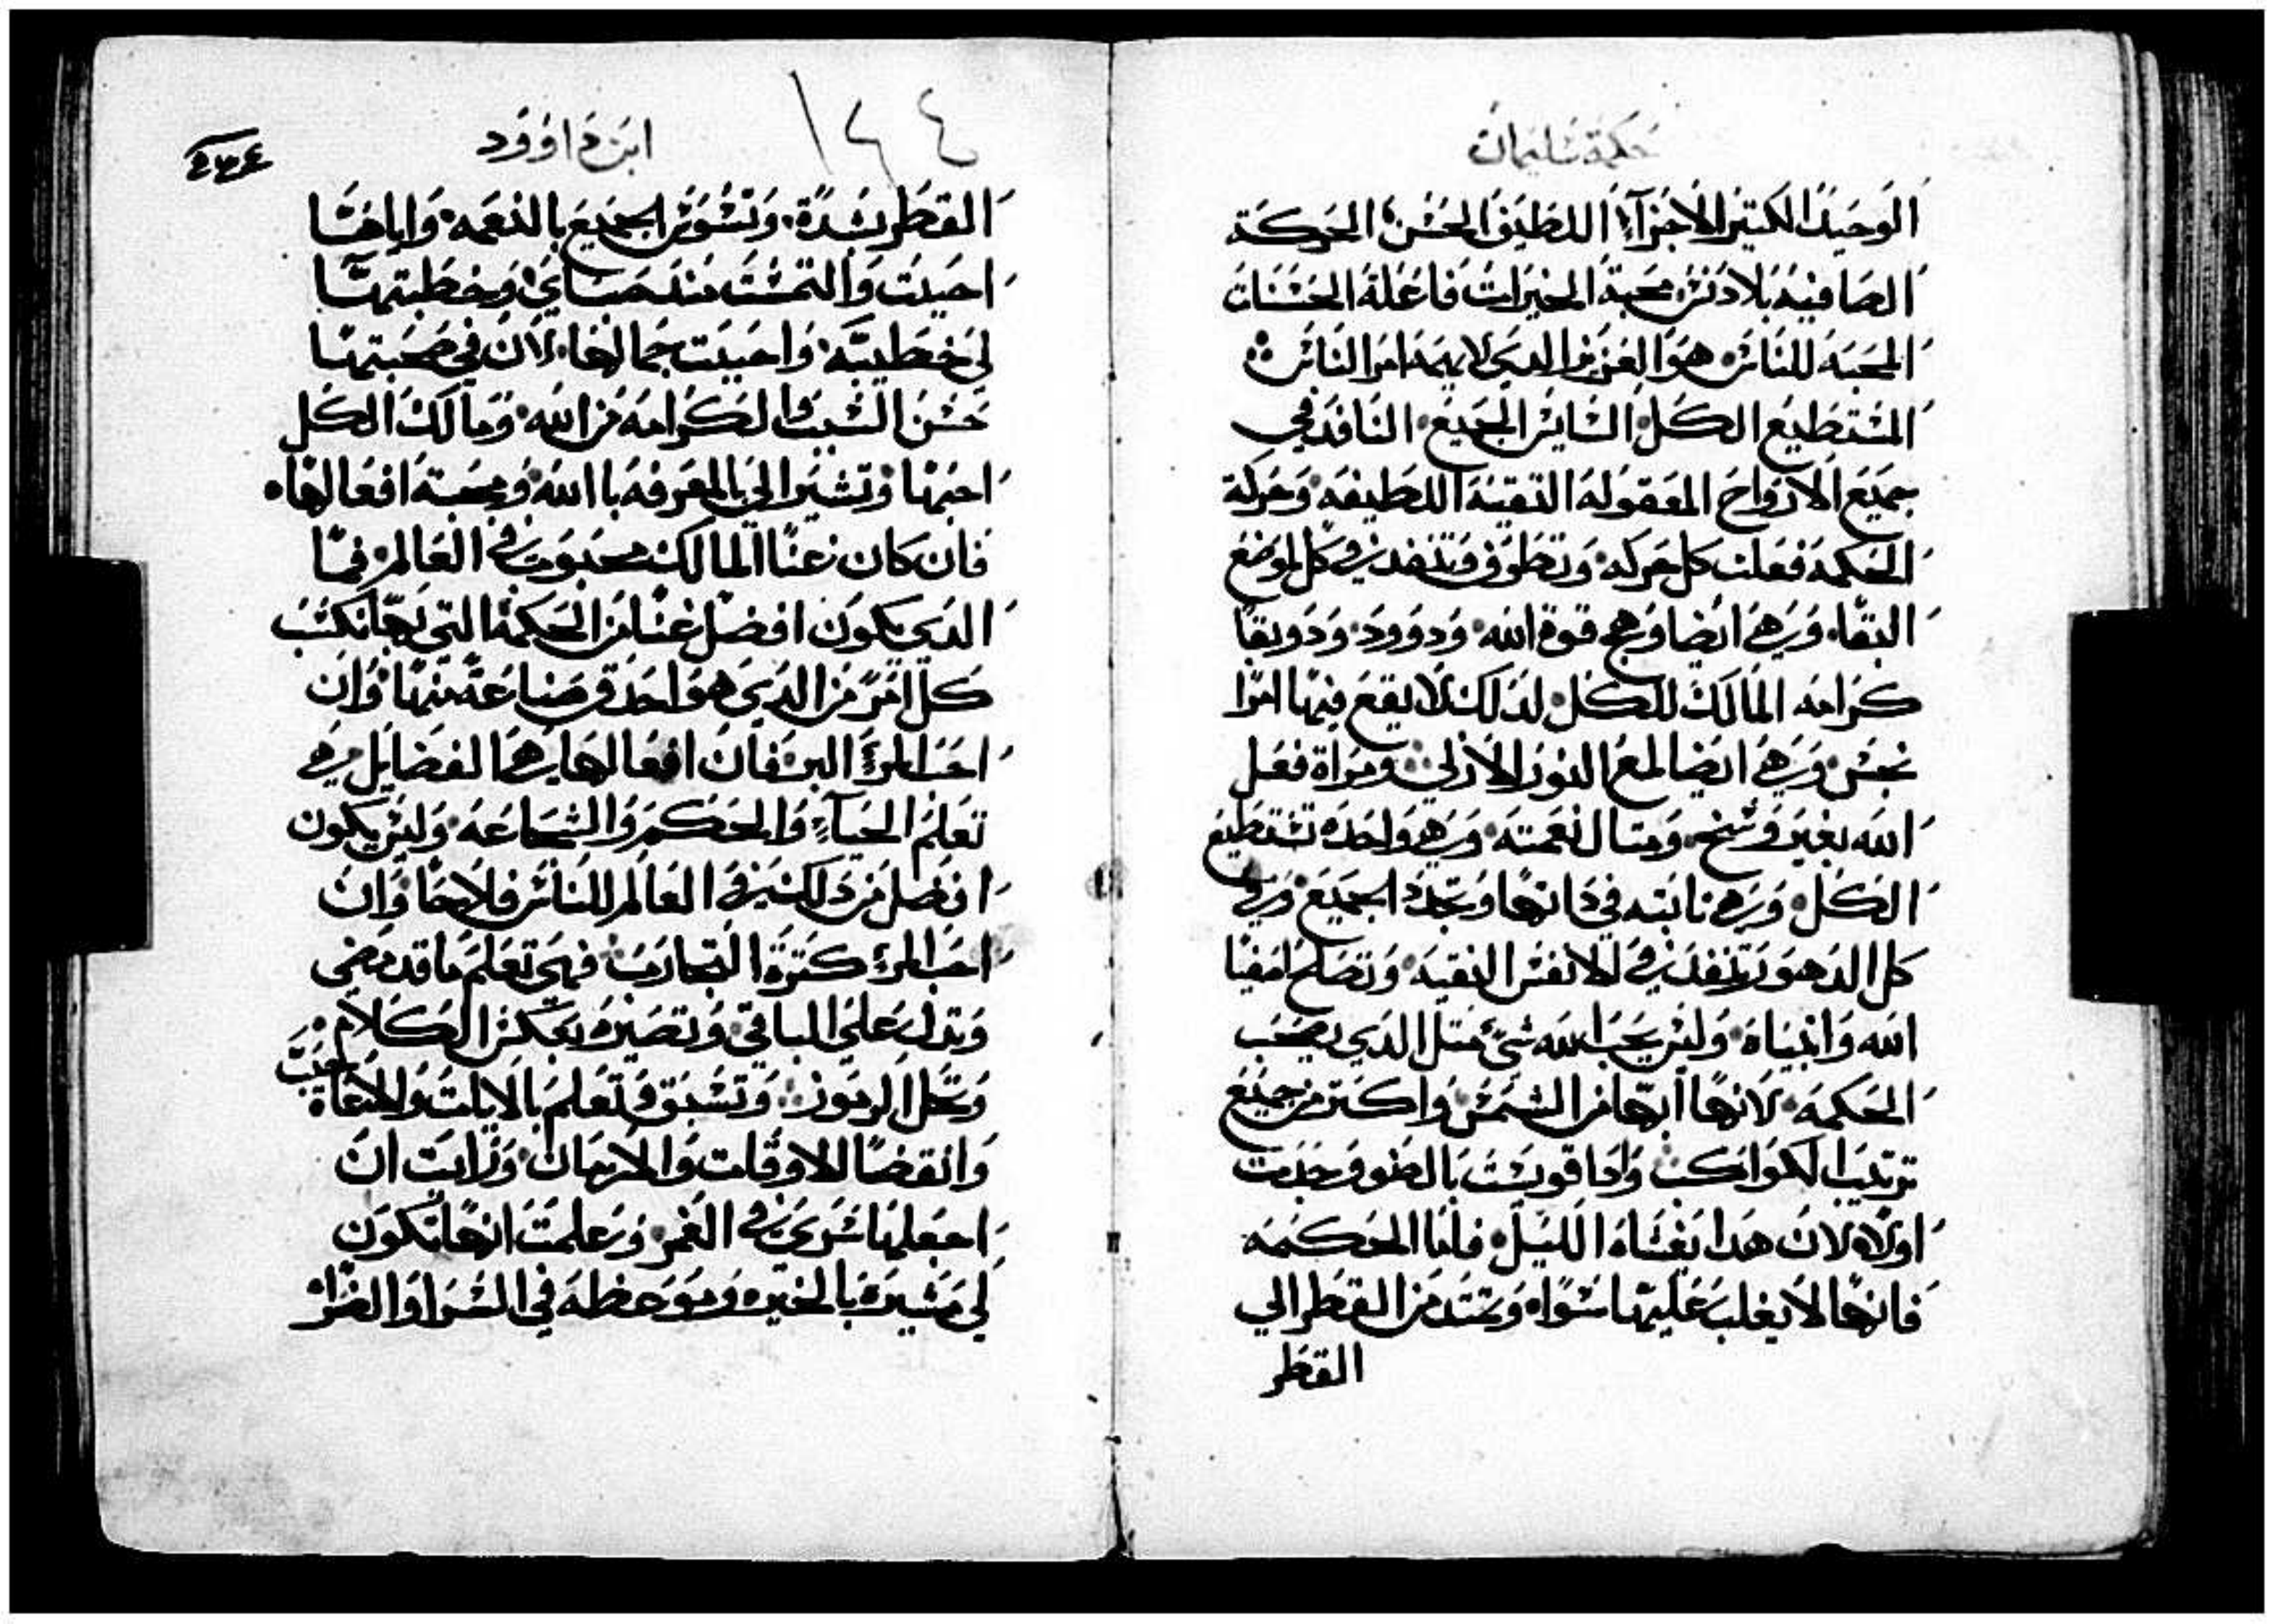 حكمة سليمان
الوحيد الكتير الاجزآء اللطيف الحسن الحركة
الصافيه بلا دنس محبة الخيرات فاعلة الحسنات
المحبه للناس هو العزيز الدي لا يهمد امر الناس
المستطيع الكل الساير الجميع النافد في
جميع الارواح المعقوله النقيه اللطيفه وحركة
الحكمه فعلت كل حركه وتطوف وتنفد في كل موضع
النقاء وهي ايضا وهج قوة الله ودوود ودويقا
كرامه المالك للكل لدلك لا يقع فيها امرا
نجس وهي ايضا لمع النور الازلي ومراة فعل
الله بغير وسخ ومتال نعمته وهي واحده تستطيع
الكل وهي تابته في داتها وتجدد الجميع وفي
كل الدهور تنفد في الانفس النقيه وتصلح اصفيا
الله وانبياه وليس يحب الله شيء متل الدي يصحب
الحكمه لانها ابها من الشمس واكتر من جميع
ترتيب الكواكب وادا قويست بالضو وجدت
اولاه لان هدا يغشاه الليل فاما الحكمه
فانها لا يغلب عليها سواه وتمتد من القطر الي
القطر
ابن داوود
١٤٤
القطر بشدة وتسوس الجميع بالنعمه واياها
احببت والتمست مند صباي وخطبتها
لي خطيبه واحببت جمالها لان في صحبتها
حسن النسب والكرامه من الله ومالك الكل
احبها وتشير الي بالمعرفه باالله ومحبة افعالها
فان كان غنا المالك محبوب في العالم فما
الدي يكون افضل غنا من الحكمة التي بها نكتسب
كل امر من الدي هو احدق صناعة منها وان
احب المرء البر فان افعالها هي الفضايل وهي
تعلم الحياء والحكم والشجاعه وليس يكون
افضل من دلك في العالم للناس فلاحا وان
احب المرء كترة التجارب فهي تعلم ما قد مضي
وتدل علي الباقي وتصيره بعكس الكلام
وتحل الرموز وتسبق وتعلم بالايات والاعاجيب
وانقضا الاوقات والازمان ورايت ان
اجعلها شريكي في العمر وعلمت انها تكون
لي مشيره بالخير وموعظه في السرا والضرا